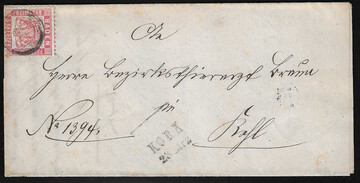 BADEN
An
Herrn Bezirksthierarzt Braun
in
No 1394.
Kehl.
KORK